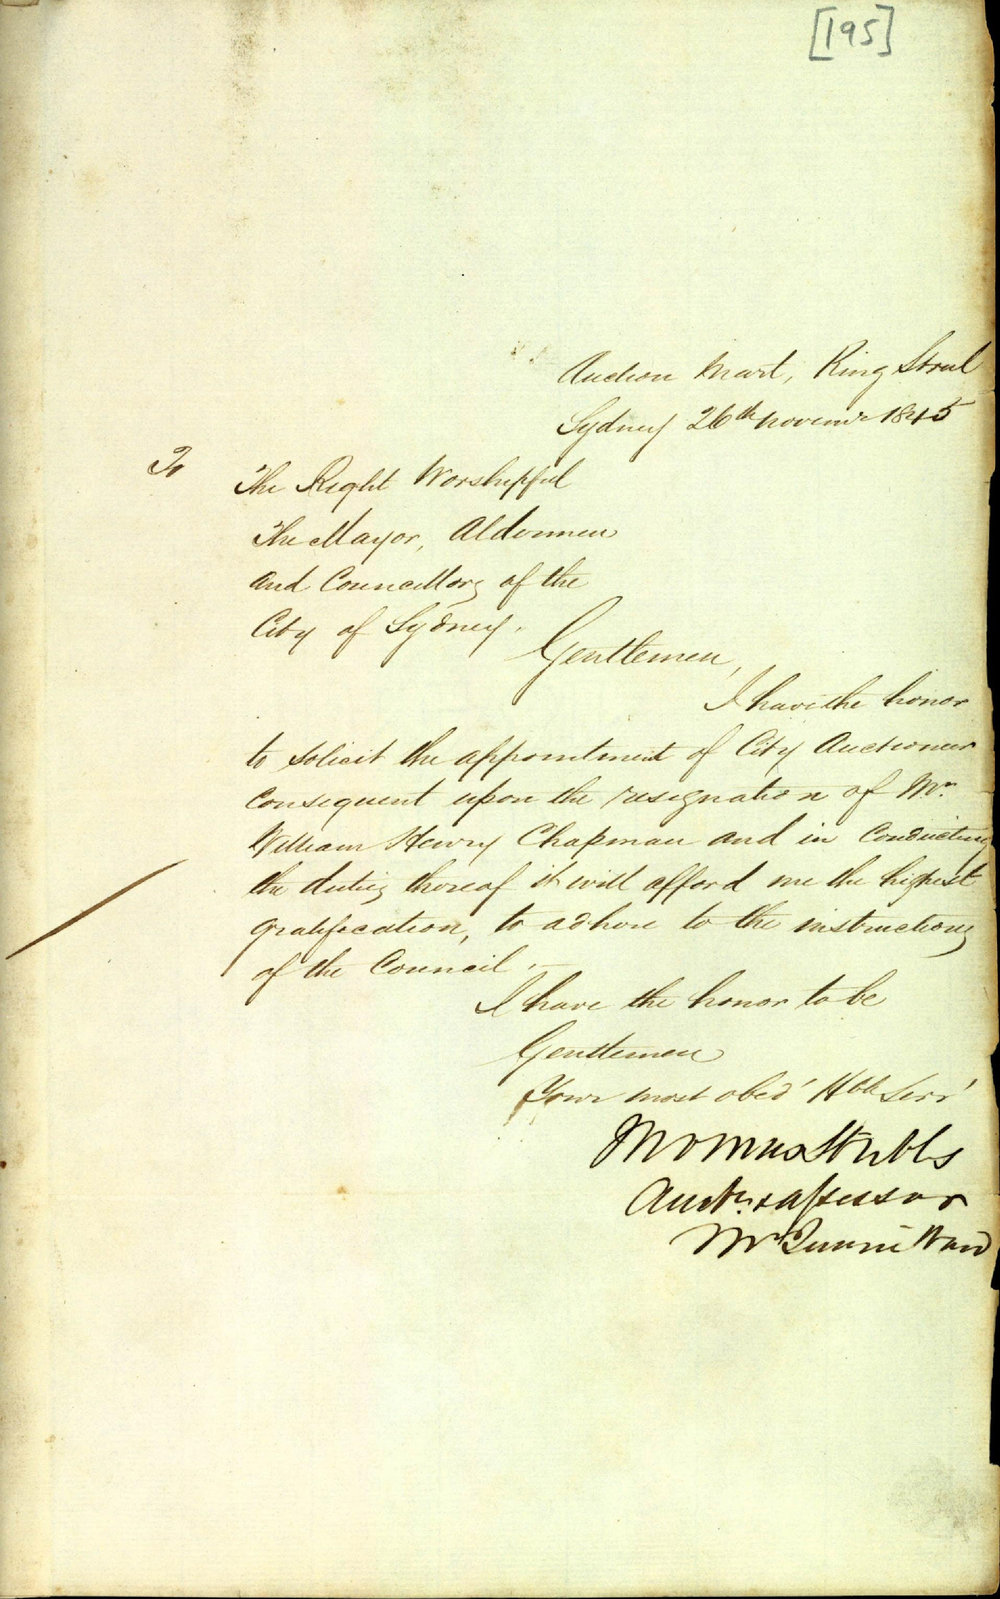 [195]
Auction Mart, King Street
Sydney 26th Novemr 1845
To
The Right Worshipful
The Mayor, Aldermen
and Councillors of the
City of Sydney.
Gentlemen,
I have the honor
to solicit the appointment of City Auctioneer
consequent upon the resignation of Mr.
William Henry Chapman and in conducting
the duties thereof it will afford me the highest
gratification, to adhere to the instructions
of the Council.—
I have the honor to be
Gentlemen
Your most obedt Hble Servt
Thomas Stubbs
Auctr. & Assessor
McQuarie Ward